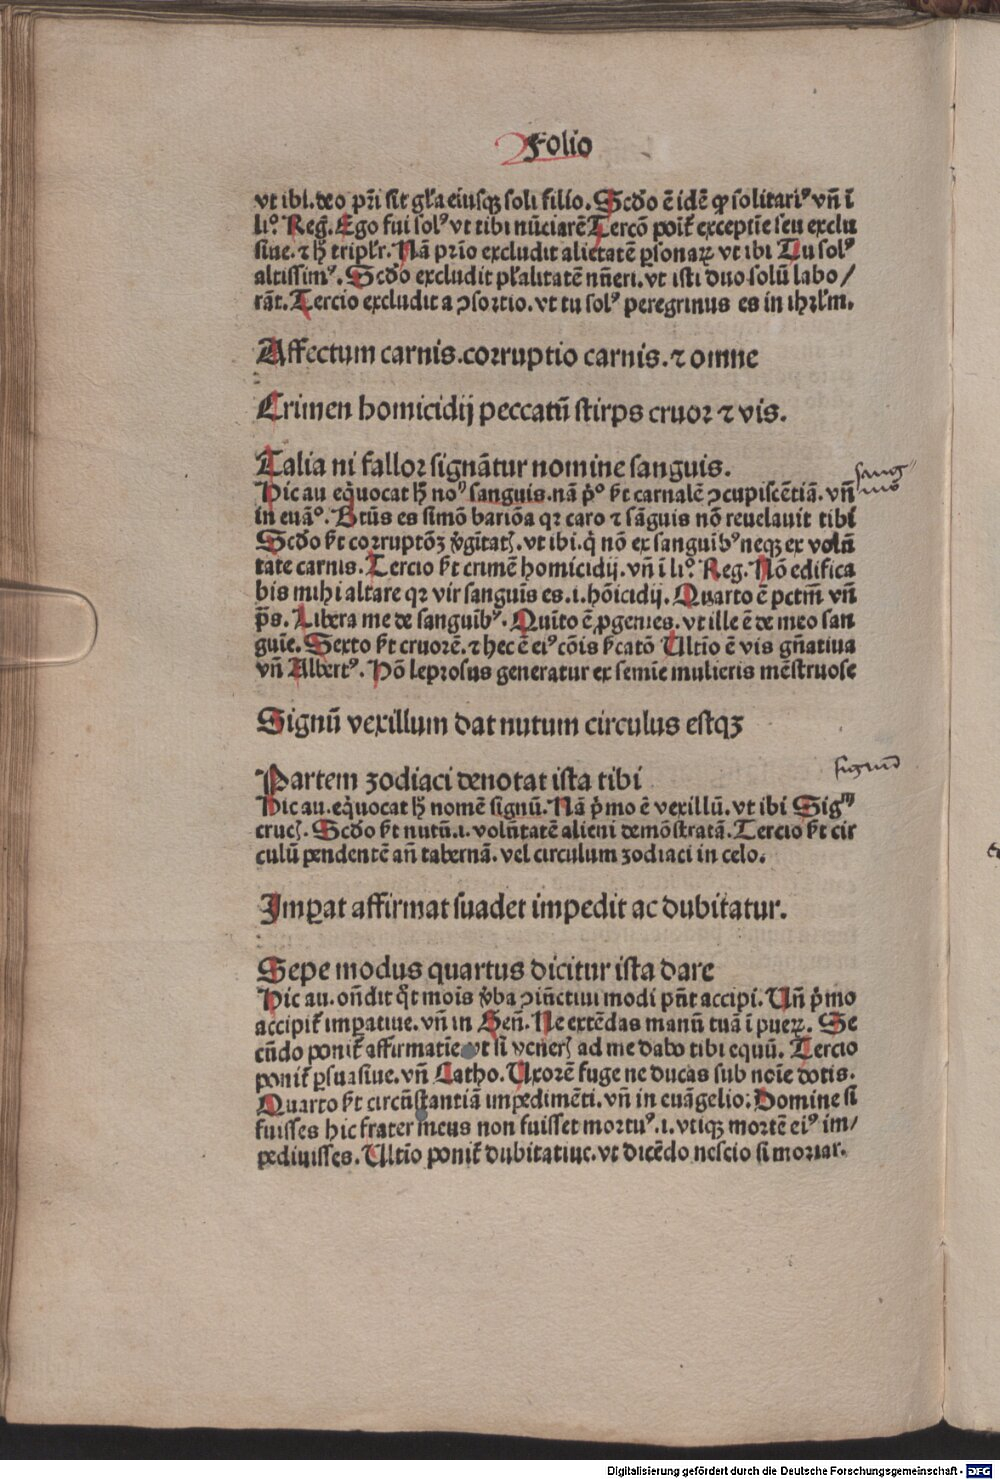 Folio
vt ibi. deo pr̄i sit gl̄a eiusqꝫ soli filio. Scd̄o ē idē qꝙ solitariꝰ vn̄ ī
li°. Reḡ. Ego fui solꝰ vt tibi nūciarē Tercō poit̄ exceptīe seu exclu
siue. ⁊ h̄ triplr̄. Nā prīo excludit alietatē ꝑsonaꝝ vt ibi Tu solꝰ
altissimꝰ. Scd̄o excludit pl̄alitatē nūeri. vt isti duo solū labo/
rāt. Tercio excludit a ꝯsortio. vt tu solꝰ peregrinus es in ihrl̄m.
Affectum carnis. corruptio carnis. ⁊ omne
Crimen homicidij peccatū stirps cruor ⁊ vis.
Talia ni fallor signātur nomine sanguis.
Hic au eq̇uocat h̄ noꝰ sanguis. nā p̄° s̄t carnalē ꝯcupiscētiā. vn̄
in euā°. Btūs es simō bariōa qꝛ caro ⁊ sāguis nō reuelauit tibi
Scd̄o s̄t corruptōꝫ v̄gītatꝭ. vt ibi. q̇ nō ex sanguībꝰ neqꝫ ex volū
tate carnis. Tercio s̄t crimē homicidij. vn̄ ī li°. Reg. Nō edifica
bis mihi altare qꝛ vir sanguīs es. i. hōicidij. Quarto ē pctm̄ vn̄
p̄s. Libera me de sanguībꝰ. Quīto ē ꝓgenies. vt ille ē de meo san
guīe. Sexto s̄t cruorē. ⁊ hec ē eiꝰ cōis s̄catō Ultīo ē vis gn̄atiua
vn̄ Albertꝰ. Hō leprosus generatur ex semīe mulieris mēstruose
Signū vexillum dat nutum circulus estqꝫ
Partem zodiaci denotat ista tibi
Hic au. eq̇uocat h̄ nomē signū. Nā p̄mo ē vexillū. vt ibi Sigᵐ
crucꝭ. Scd̄o s̄t nutū. i. volūtatē alieni demōstratā. Tercio s̄t cir
culū pendentē an̄ tabernā. vel circulum zodiaci in celo.
Imꝑat affirmat suadet impedit ac dubitatur.
Sepe modus quartus dicitur ista dare
Hic au. on̄dit qt̄ mois v̄ba ꝯiūctiui modi pn̄t accipi. Un̄ p̄mo
accipit̄ imꝑatiue. vn̄ in Gen̄. Ne extēdas manū tuā ī pueꝝ. Se
cūdo ponit̄ affirmatīe vt si venerꝭ ad me dabo tibi equū. Tercio
ponit̄ ꝑsuasiue. vn̄ Catho. Uxorē fuge ne ducas sub noīe dotis.
Quarto s̄t circūstantiā impedimēti. vn̄ in euāgelio: Domine si
fuisses hic frater meus non fuisset mortuꝰ. i. vtiqꝫ mortē eiꝰ im/
pediuisses. Ultīo ponit̄ dubitatiue. vt dicēdo nescio si moriar.
sang
signū
Digitalisierung gefördert durch die Deutsche Forschungsgemeinschaft - DFG